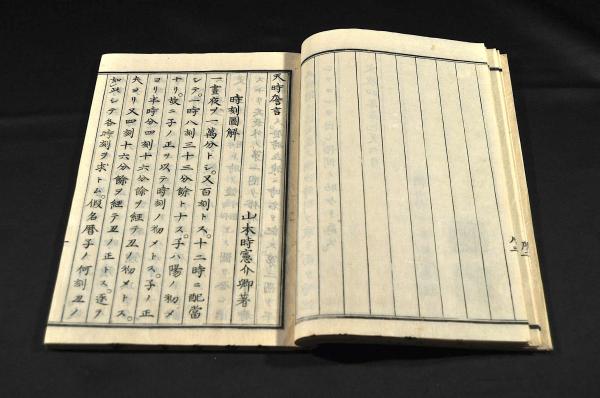 天時詹言
時刻圖解
山本時憲介卿著
一晝夜ヲ一萬分トシ。又百刻トス。十二時ニ配當
シテ。一時八刻三十三分餘トナス。子ハ陽ノ初メ
ナリ。故ニ子ノ正ヲ以テ時刻ノ初メトス。子ノ正
ヨリ半時分四刻十六分餘ヲ經テ丑ノ初メトス。
夫ヨリ又四刻十六分餘ヲ經テ丑ノ正トス。逐テ
如此シテ各時刻ヲ求ム。假名曆子ノ何刻丑ノ